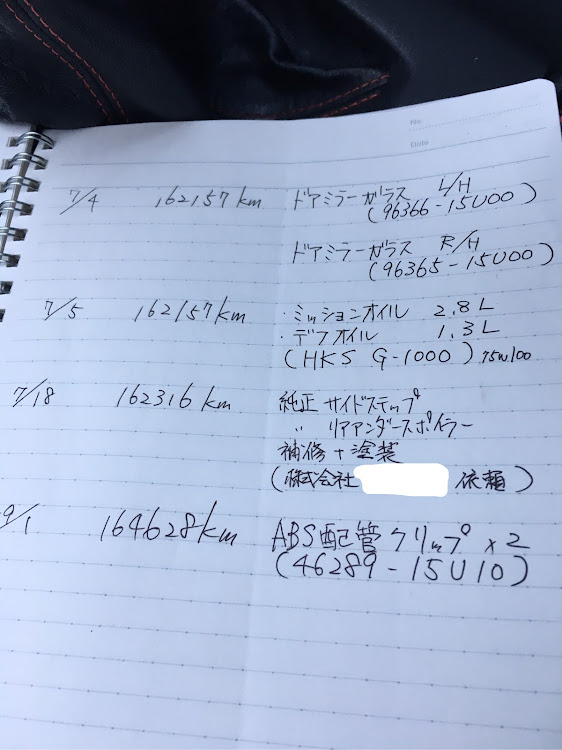 No.
Date
7/4 162157km ドアミラーガラス L/H
(96366-15U00)
ドアミラーガラス R/H
(96365-15U00)
7/5 162157km ・ミッションオイル 2.8L
・デフオイル 1.3L
(HKS G-1000) 75W100
7/18 162316km 純正 サイドステップ
〃 リアアンダースポイラー
補修+塗装
(株式会社 依頼)
9/1 164628km ABS配管クリップ×2
(46289-15U10)